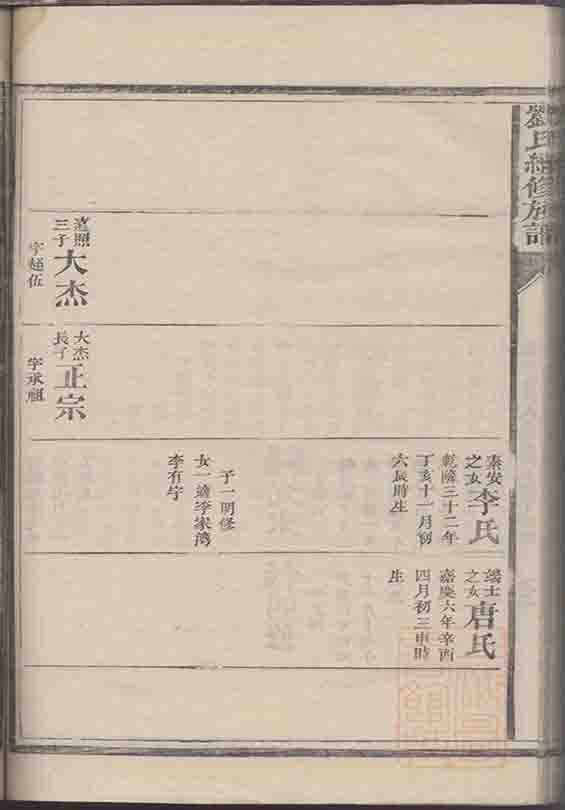 劉氏續修族譜
秦安
之女
李氏
乾隆三十二年
丁亥十一月初
六辰時生
子一明修
女一適李家湾
李有宁
端士
之女
唐氏
嘉慶六年辛酉
四月初三申時
生
三子
大杰
字越伍
大杰
長子
正宗
字承祖